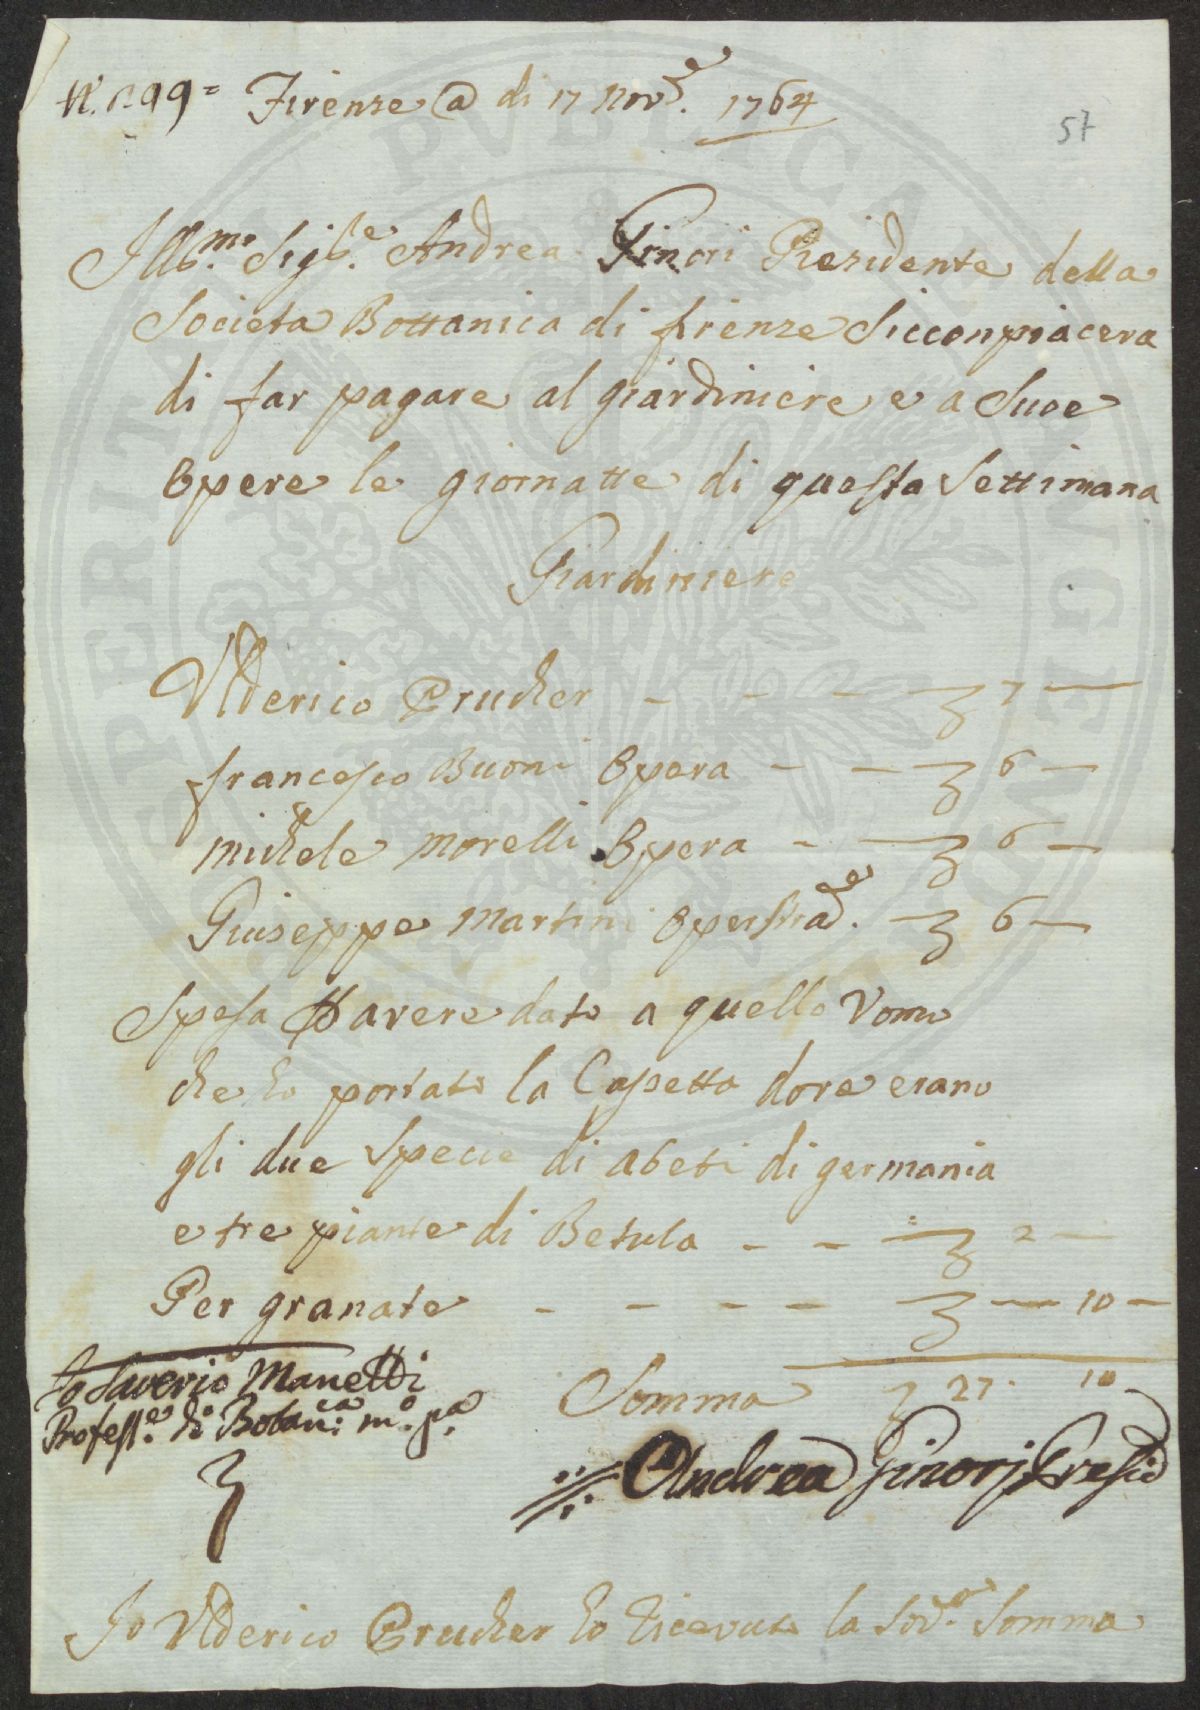 N. 099= Firenze @ di 17 Nov.e 1764
57
Illb.mo Sigb.e Andrea Ginori Presidente della
Societa Bottanica di firenze Siccompiacera
di far pagare al giardiniere e a Suoe
Opere le giornatte di questa Settimana
Giardiniere
Ulderico Prucher - - - 7 -
francesco Buoni Opera - - 6 -
michele morelli Opera - - 6 -
Giuseppe Martini Oper Strad.e - 6 -
Spesa Havere dato a quello Vomo
che ho portato la Cassetta dove erano
gli due Specie di abeti di germania
e tre piante di Betula - - 2 -
Per granate - - - - - 10 -
Io Saverio Manetti
Profess.e di Botan.ca m.o p.a
Somma 27. 10
Andrea Ginori Presid
Io Ulderico Prucher ho Ricevuto la Sod.a Somma